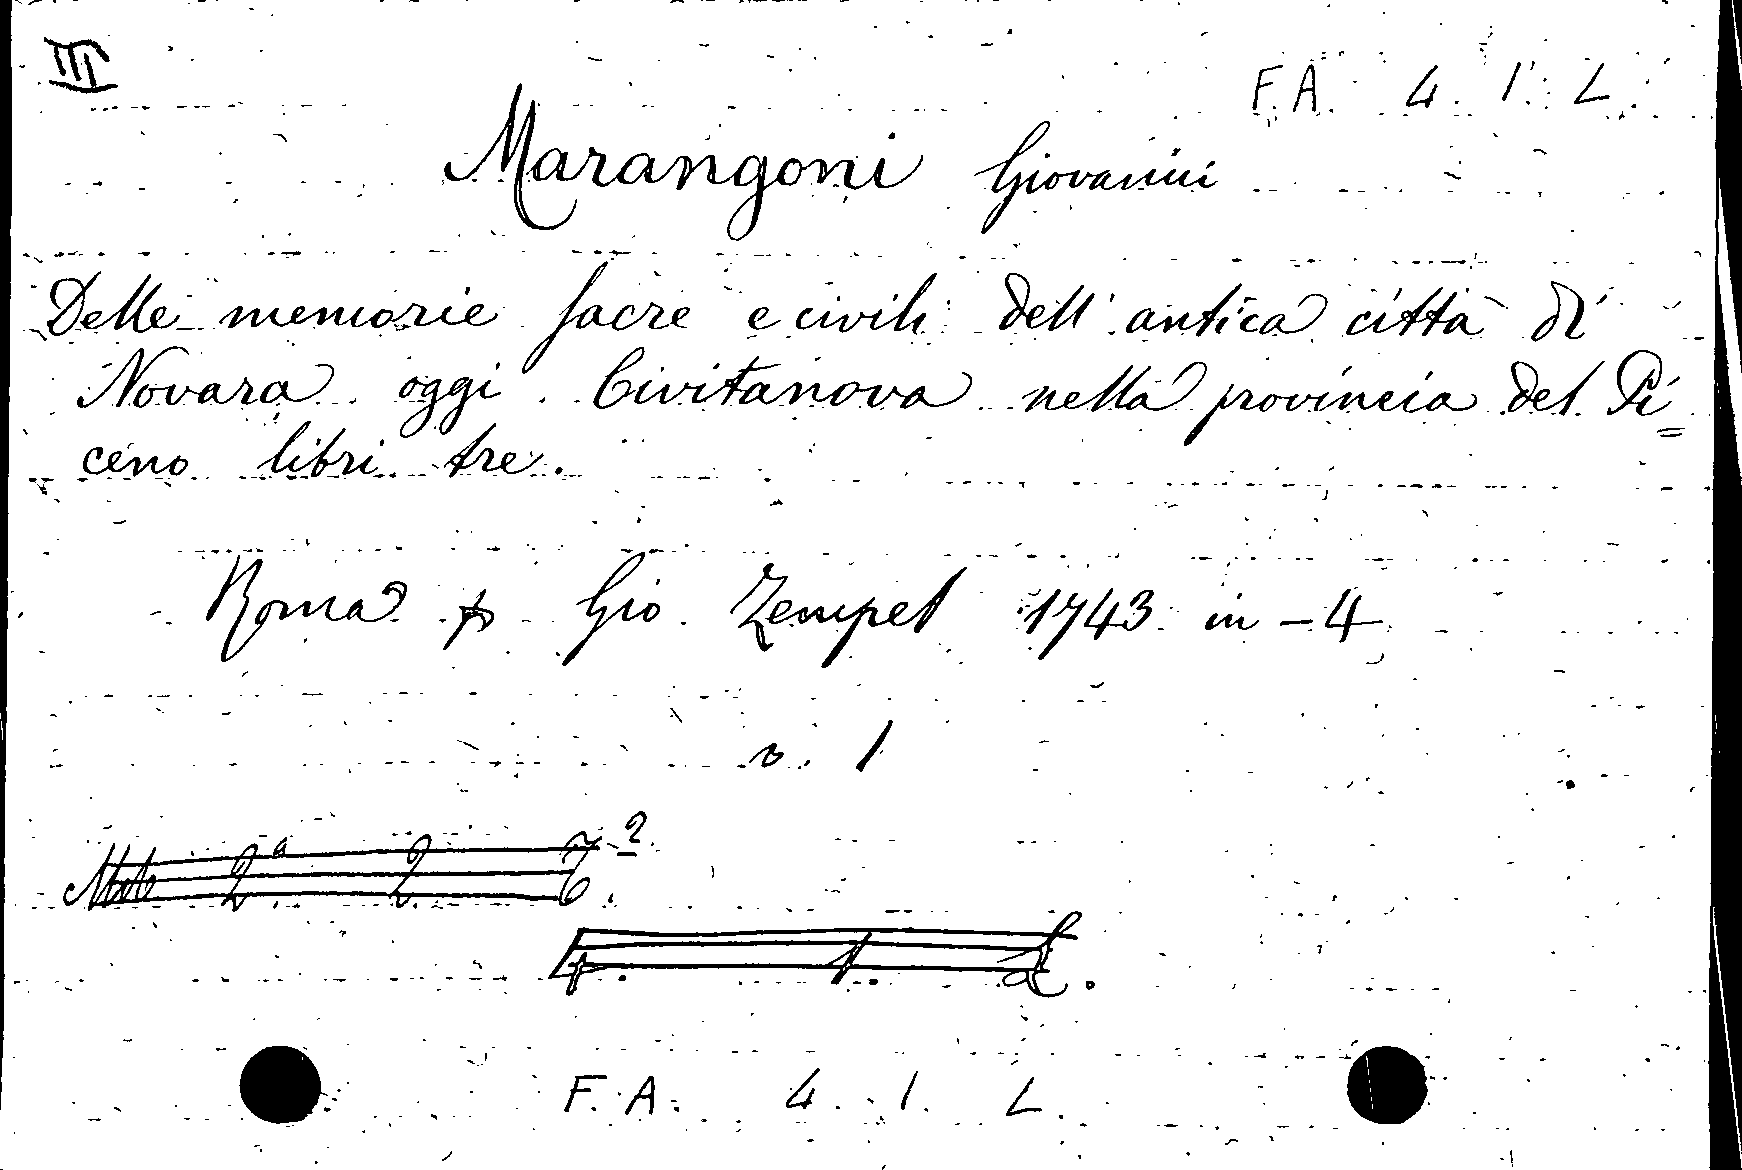 III
F. A. 4. 1. L.
Marangoni Giovanni
Delle memorie sacre e civili dell' antica città di
Novara oggi Civitanova nella provincia del Pi=
ceno libri tre.
Roma p Gio Zempel 1743 in-4
v. 1
2ª 2
4. 1. L.
F. A. 4. 1. L.